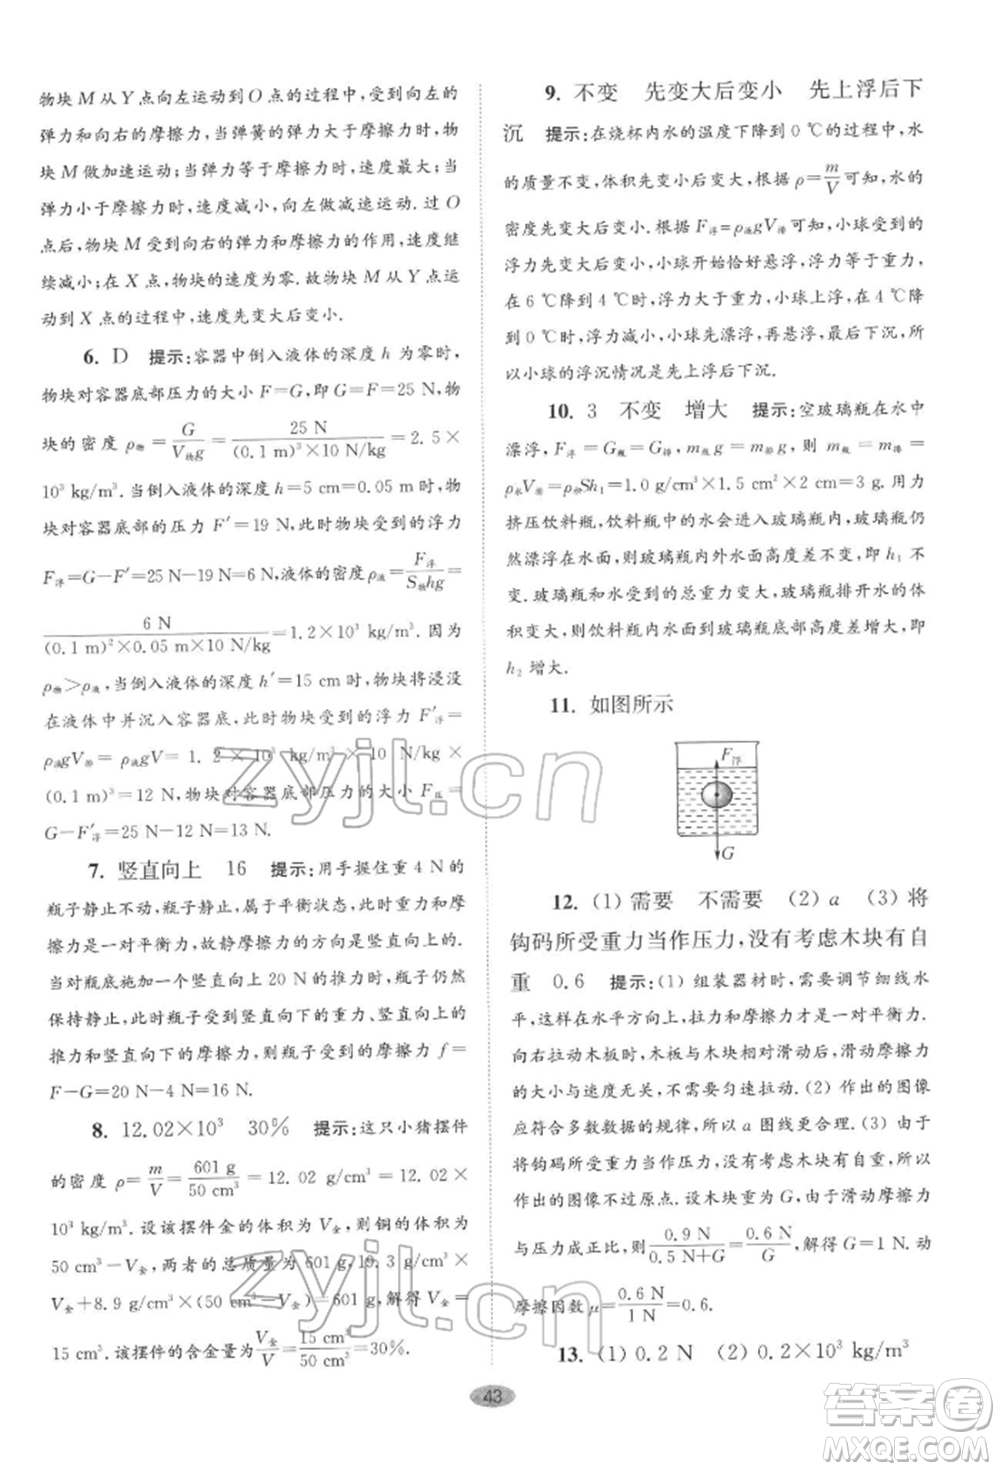 物块 M 从 Y 点向左运动到 O 点的过程中,受到向左的
弹力和向右的摩擦力,当弹簧的弹力大于摩擦力时,物
块 M 做加速运动;当弹力等于摩擦力时,速度最大;当
弹力小于摩擦力时,速度减小,向左做减速运动.过 O
点后,物块 M 受到向右的弹力和摩擦力的作用,速度继
续减小;在 X 点,物块的速度为零.故物块 M 从 Y 点运
动到 X 点的过程中,速度先变大后变小.
6. D 提示:容器中倒入液体的深度 h 为零时,
物块对容器底部压力的大小 F=G,即 G=F=25 N,物
块的密度 ρ物=G/V物g=25 N/((0.1 m)³×10 N/kg)=2.5×
10³ kg/m³.当倒入液体的深度 h=5 cm=0.05 m 时,物
块对容器底部的压力 F′=19 N,此时物块受到的浮力
F浮=G-F′=25 N-19 N=6 N,液体的密度 ρ液=F浮/S物hg=
6 N/((0.1 m)²×0.05 m×10 N/kg)=1.2×10³ kg/m³.因为
ρ物>ρ液,当倒入液体的深度 h′=15 cm 时,物块将浸没
在液体中并沉入容器底,此时物块受到的浮力 F′浮=
ρ液gV排=ρ液gV=1.2×10³ kg/m³×10 N/kg×
(0.1 m)³=12 N,物块对容器底部压力的大小 F压=
G-F′浮=25 N-12 N=13 N.
7. 竖直向上 16 提示:用手握住重 4 N 的
瓶子静止不动,瓶子静止,属于平衡状态,重力和摩
擦力是一对平衡力,故静摩擦力的方向是竖直向上.
在瓶底施加一个竖直向上 20 N 的推力时,瓶子仍然
保持静止,此时瓶子受到竖直向下的重力、竖直向上的
推力和竖直向下的摩擦力,则瓶子受到的摩擦力 f=
F-G=20 N-4 N=16 N.
8. 12.02×10³ 30% 提示:这只小猪摆件
的密度 ρ=m/V=601 g/50 cm³=12.02 g/cm³=12.02×
10³ kg/m³.设该摆件金的体积为 V金,则铜的体积为
50 cm³-V金,该摆件的总质量为 601 g,19.3 g/cm³×
V金+8.9 g/cm³×(50 cm³-V金)=601 g,解得 V金=
15 cm³.该摆件的含金量为 V金/V=15 cm³/50 cm³=30%.
9. 不变 先变大后变小 先上浮后下
沉 提示:在烧杯内水的温度下降到 0 ℃的过程中,水
的质量不变,体积先变小后变大,根据 ρ=m/V可知,水的
密度先变大后变小.根据 F浮=ρ液gV排可知,小球受到的
浮力先变大后变小.小球开始恰好悬浮,浮力等于重力,
在 6 ℃降到 4 ℃时,浮力大于重力,小球上浮,在 4 ℃降
到 0 ℃时,浮力减小,小球先漂浮,再悬浮,最后下沉,所
以小球的浮沉情况是先上浮后下沉.
10. 3 不变 增大 提示:空玻璃瓶在水中
漂浮,F浮=G瓶=G排,m瓶g=m排g,m瓶=m排,则 m瓶=
ρ水V排=ρ水Sh₁=1.0 g/cm³×1.5 cm²×2 cm=3 g.用力
挤压饮料瓶,饮料瓶中的水会进入玻璃瓶,此时玻璃瓶仍
然漂浮在水面,则玻璃瓶内外水面高度差不变,即 h₁ 不
变.玻璃瓶和水受到的总重力变大,玻璃瓶排开水的体
积变大,则饮料瓶内水面到玻璃瓶底部高度差增大,即
h₂ 增大.
11. 如图所示
F浮
G
12. (1) 需要 不需要 (2) a (3) 将
钩码所受重力当作压力,没有考虑木块有自
重 0.6 提示:(1) 组装器材时,需要调节细线水
平,这样在水平方向上,拉力和摩擦力才是一对平衡力.
向右拉动木板时,木板与木块相对滑动,滑动摩擦力
的大小与速度无关,不需要匀速拉动.(2) 作出的图像
应符合多数数据的规律,所以 a 图线更合理.(3) 由于
将钩码所受重力当作压力,没有考虑木块有自重,所以
作出的图像不过原点.设木块重为 G,由于滑动摩擦力
与压力成正比,则 0.9 N/(0.5 N+G)=0.6 N/G,解得 G=1 N,则
摩擦因数 μ=0.6 N/1 N=0.6.
13. (1) 0.2 N (2) 0.2×10³ kg/m³
43
zyjl.cn
zyjl.cn
答案卷
MXQE.COM